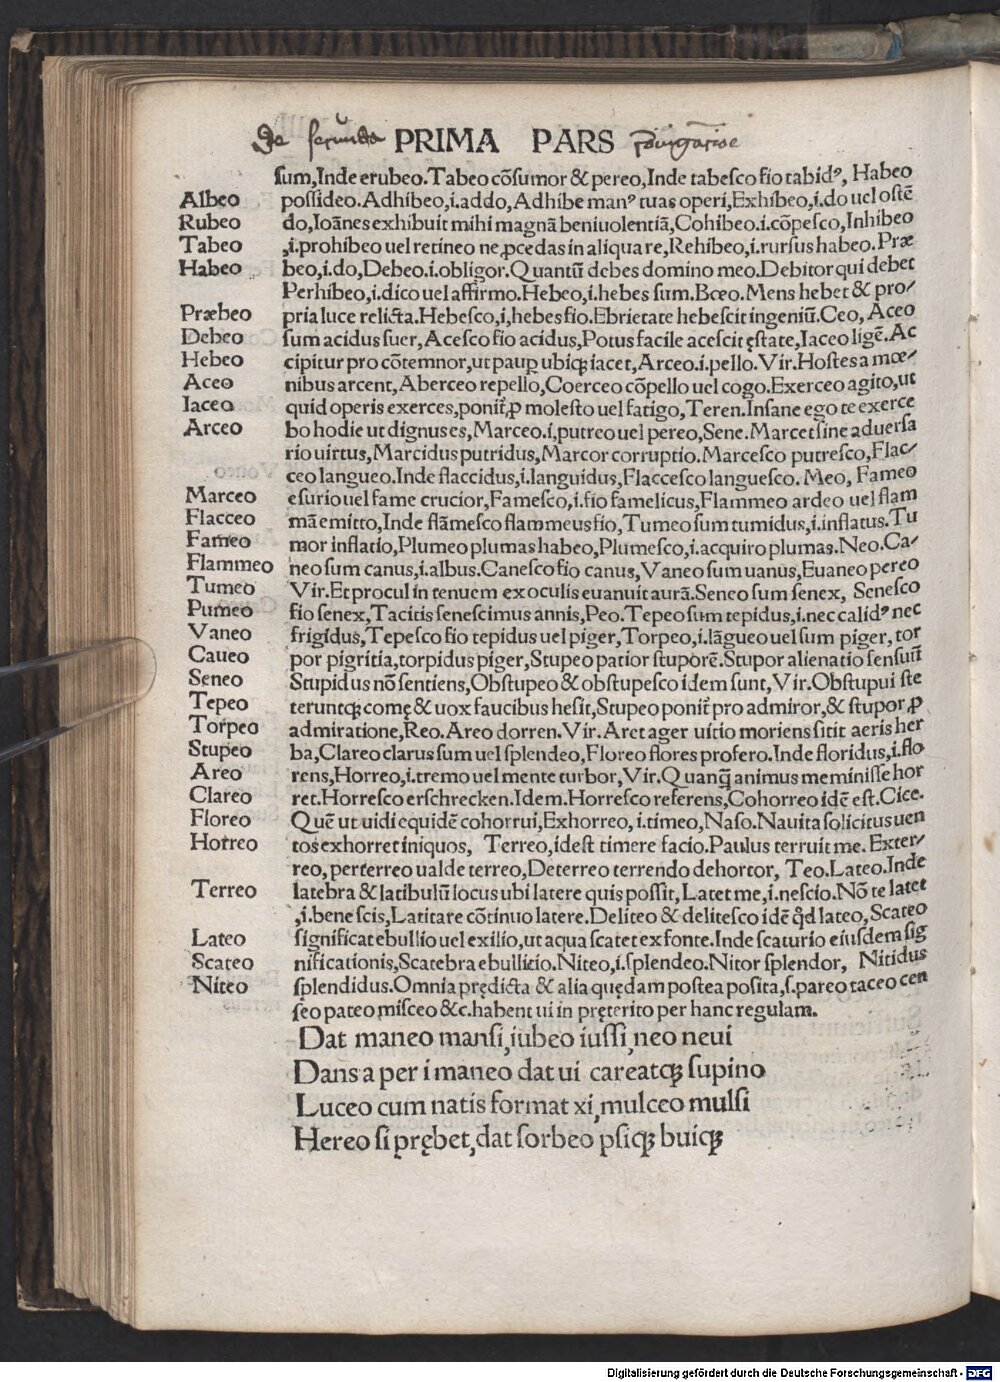 De secunda PRIMA PARS
sum,Inde erubeo.Tabeo cõsumor & pereo,Inde tabesco fio tabidꝰ, Habeo
Albeo possideo.Adhibeo,i.addo,Adhibe manꝰ tuas operi,Exhibeo,i.do uel ostẽ
Rubeo do,Ioãnes exhibuit mihi magnã beniuolentiã,Cohibeo.i.cõpesco,Inhibeo
Tabeo ,i.prohibeo uel retineo ne ꝓcedas in aliqua re,Rehibeo,i.rursus habeo.Præ
Habeo beo,i.do,Debeo.i.obligor.Quantũ debes domino meo.Debitor qui debet
Perhibeo,i.dico uel affirmo.Hebeo,i.hebes sum.Bœo.Mens hebet & pro/
Præbeo pria luce relicta.Hebesco,i,hebes fio.Ebrietate hebescit ingeniũ.Ceo, Aceo
Debeo sum acidus suer,Acesco fio acidus,Potus facile acescit ęstate,Iaceo ligẽ.Ac
Hebeo cipitur pro cõtemnor,ut paup ubiqꝫ iacet,Arceo.i.pello.Vir.Hostes a mœ/
Aceo nibus arcent,Aberceo repello,Coerceo cõpello uel cogo.Exerceo agito,ut
Iaceo quid operis exerces,ponit̃ ꝓ molesto uel fatigo,Teren.Insane ego te exerce
Arceo bo hodie ut dignus es,Marceo.i,putreo uel pereo,Sene.Marcet sine aduersa
rio uirtus,Marcidus putridus,Marcor corruptio.Marcesco putresco,Flac/
ceo langueo.Inde flaccidus,i.languidus,Flaccesco languesco. Meo, Fameo
Marceo esurio uel fame crucior,Famesco,i.fio famelicus,Flammeo ardeo uel flam
Flacceo mã emitto,Inde flãmesco flammeus fio,Tumeo sum tumidus,i.inflatus.Tu
Fameo mor inflatio,Plumeo plumas habeo,Plumesco,i.acquiro plumas.Neo.Ca/
Flammeo neo sum canus,i.albus.Canesco fio canus,Vaneo sum uanus,Euaneo pereo
Tumeo Vir.Et procul in tenuem ex oculis euanuit aurã.Seneo sum senex, Senesco
Pumeo fio senex,Tacitis senescimus annis,Peo.Tepeo sum tepidus,i.nec calidꝰ nec
Vaneo frigidus,Tepesco fio tepidus uel piger,Torpeo,i.lãgueo uel sum piger, tor
Caueo por pigritia,torpidus piger,Stupeo patior stuporẽ.Stupor alienatio sensuũ
Seneo Stupidus nõ sentiens,Obstupeo & obstupesco idem sunt,Vir.Obstupui ste
Tepeo teruntqꝫ comę & uox faucibus hesit,Stupeo ponit̃ pro admiror,& stupor ꝓ
Torpeo admiratione,Reo.Areo dorren.Vir.Aret ager uitio moriens sitit aeris her
Stupeo ba,Clareo clarus sum uel splendeo,Floreo flores profero.Inde floridus,i.flo
Areo rens,Horreo,i.tremo uel mente turbor,Vir.Quanq̃ animus meminisse hor
Clareo ret.Horresco erschrecken.Idem.Horresco referens,Cohorreo idẽ est.Cice.
Floreo Quẽ ut uidi equidẽ cohorrui,Exhorreo, i.timeo,Naso.Nauita solicitus uen
Horreo tos exhorret iniquos, Terreo,idest timere facio.Paulus terruit me. Exter/
reo, perterreo ualde terreo,Deterreo terrendo dehortor, Teo.Lateo.Inde
Terreo latebra & latibulũ locus ubi latere quis possit,Latet me,i.nescio.Nõ te latet
,i.bene scis,Latitare cõtinuo latere.Deliteo & delitesco idẽ qd̃ lateo,Scateo
Lateo significat ebullio uel exilio,ut aqua scatet ex fonte.Inde scaturio eiusdem sig
Scateo nificationis,Scatebra ebullitio.Niteo,i.splendeo.Nitor splendor, Nitidus
Niteo splendidus.Omnia prędicta & alia quędam postea posita,s.pareo taceo cen
seo pateo misceo &c.habent ui in pręterito per hanc regulam.
Dat maneo mansi,iubeo iussi,neo neui
Dans a per i maneo dat ui careatqꝫ supino
Luceo cum natis format xi,mulceo mulsi
Hereo si prębet,dat sorbeo psiqꝫ buiqꝫ
Digitalisierung gefördert durch die Deutsche Forschungsgemeinschaft - DFG